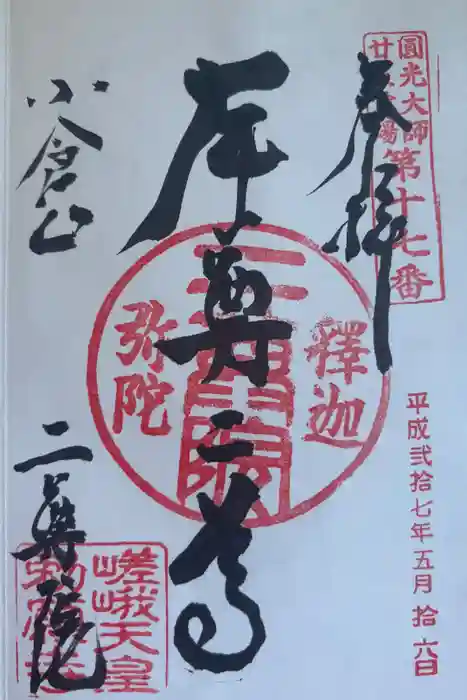 奉拝
圓光大師
廿五霊場
第十七番
平成弐拾七年五月拾六日
本尊二尊
釋迦
二尊院
弥陀
小倉山
二尊院
嵯峨天皇
勅願